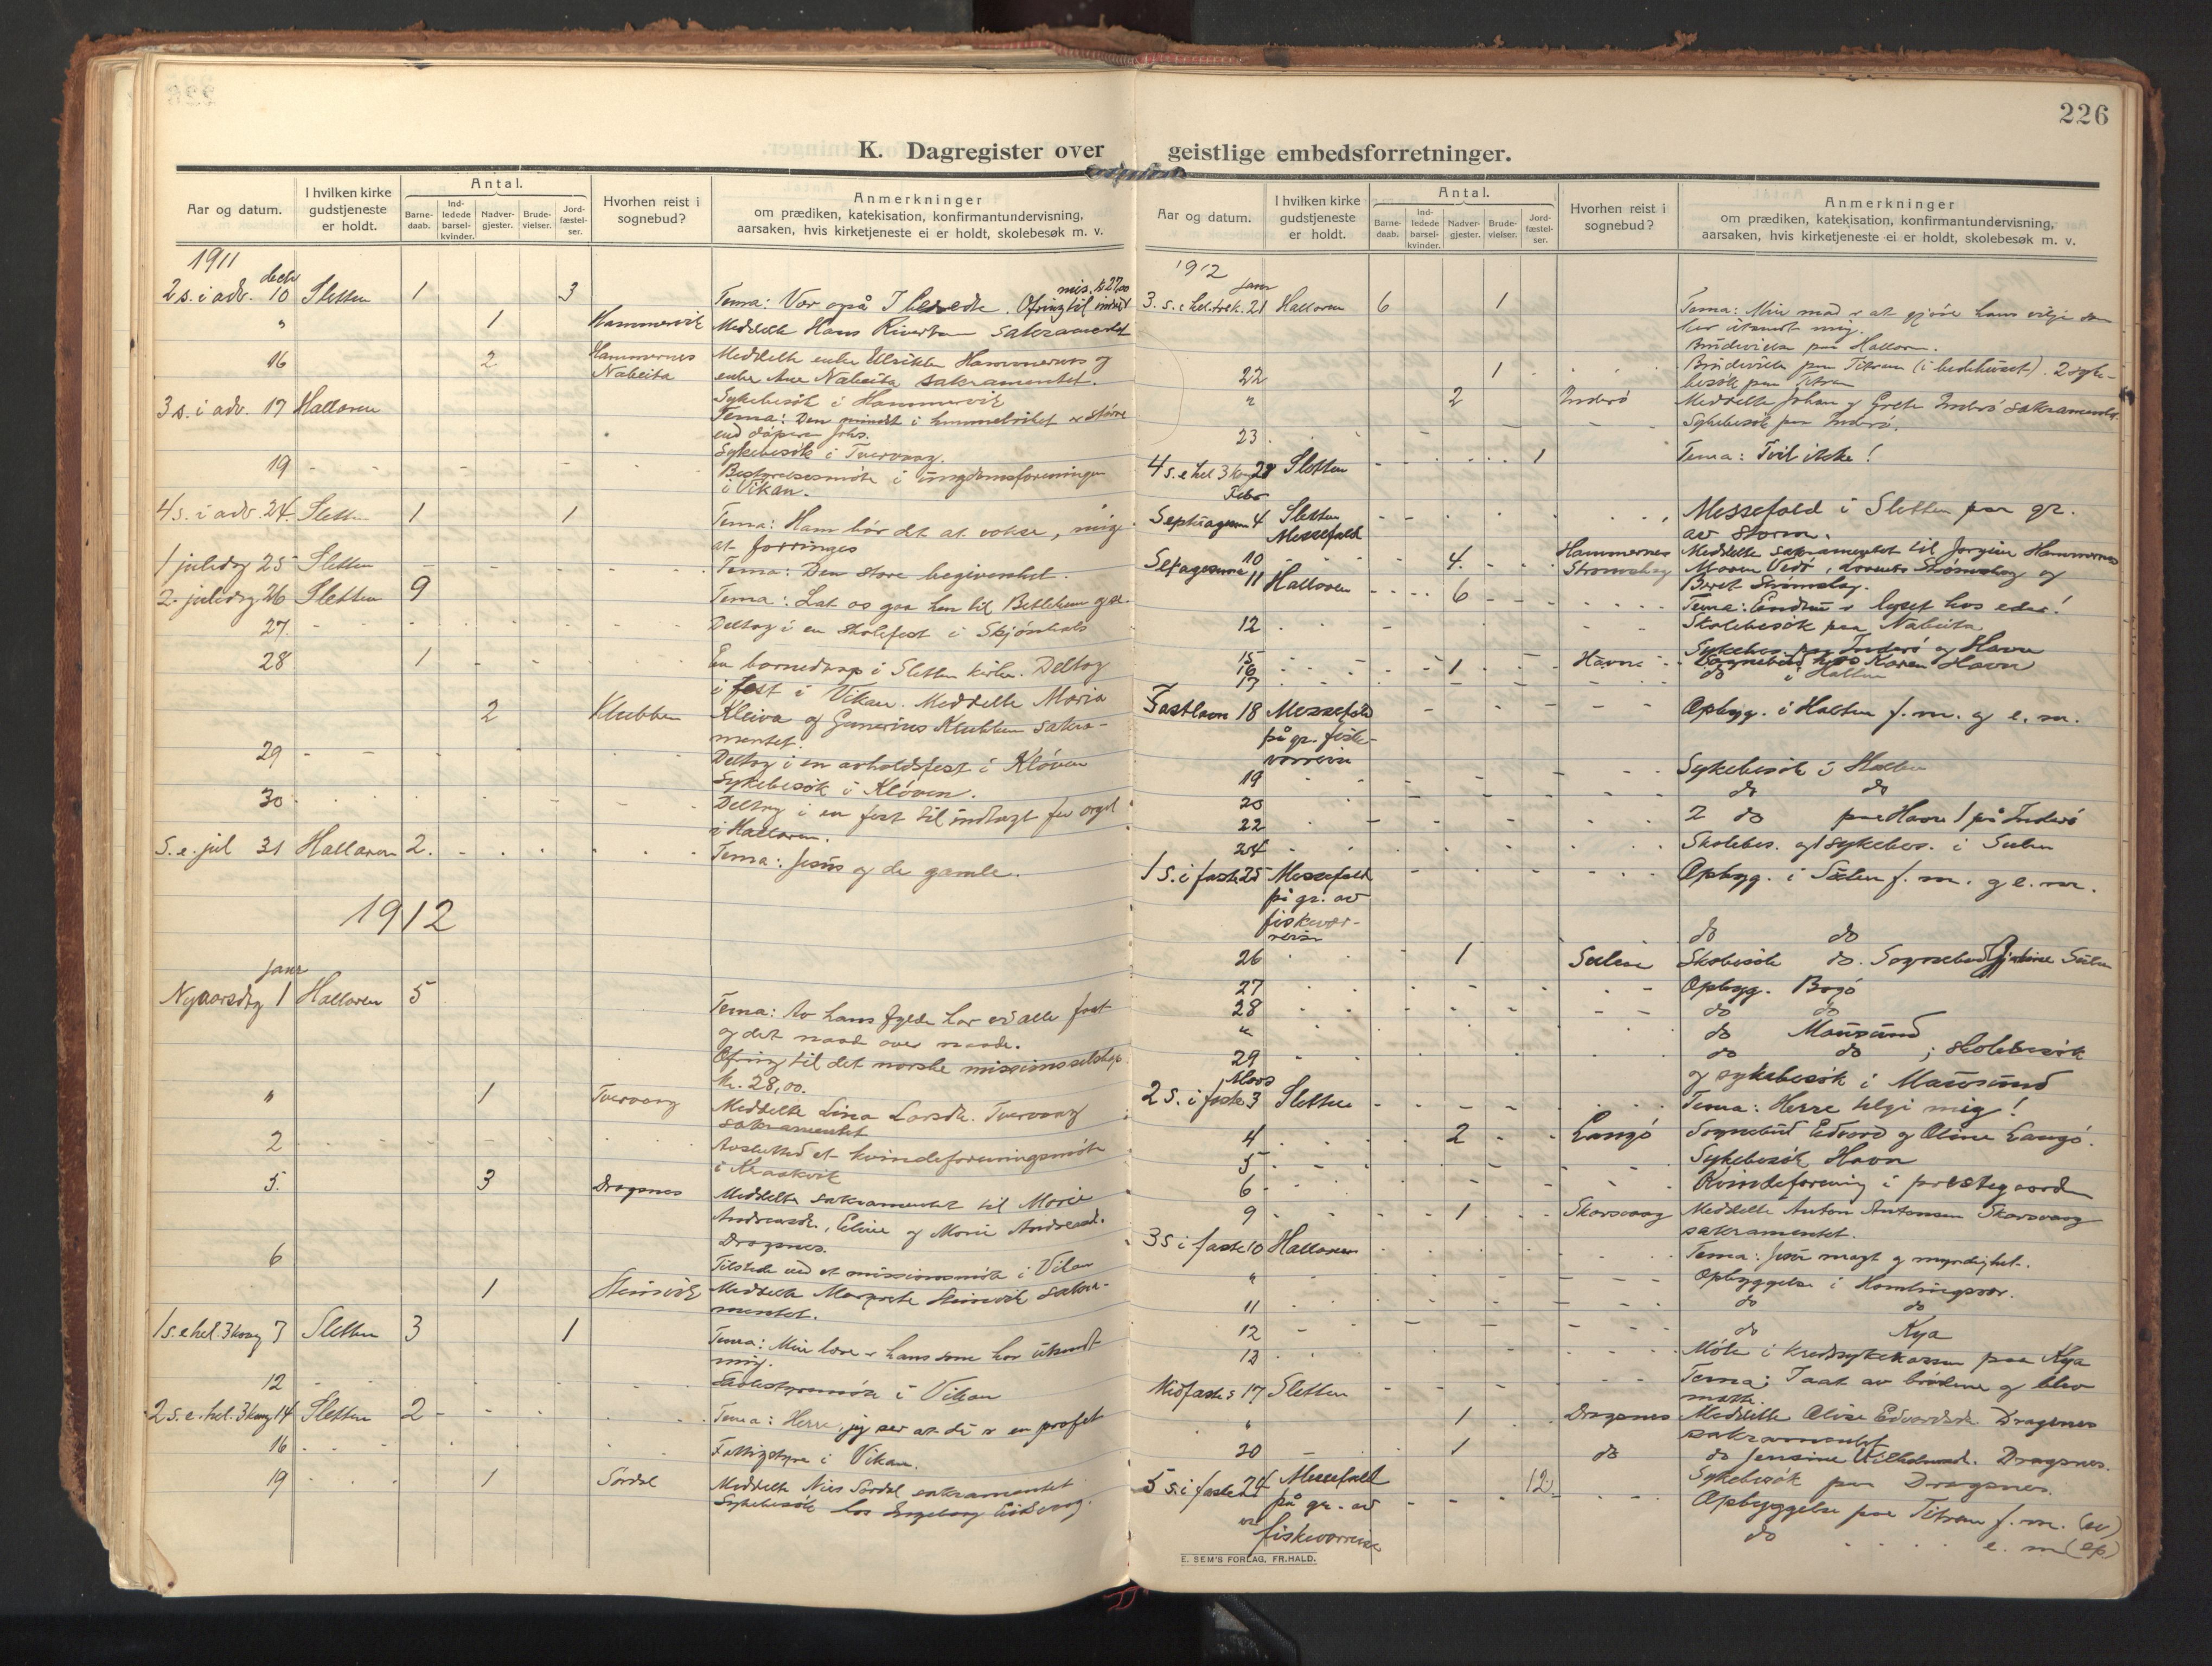 226
K. Dagregister over geistlige embedsforretninger.
Aar og datum.
I hvilken kirke gudstjeneste er holdt.
Antal.
Barne-daab.
Ind-ledede barsel-kvinder.
Nadver-gjester.
Brude-vielser.
Jord-fæstel-ser.
Hvorhen reist i sognebud?
Anmerkninger
om prædiken, katekisation, konfirmantundervisning,
aarsaken, hvis kirketjeneste ei er holdt, skolebesøk m. v.
1911
2 s. i adv. decbr 10 Sletten 1 3 Tema: Vær også I beredte. Ofring til
" 1 Hammervik Meddelte Hans sakramentet
16 2 Hammernes Nabeita Meddelte enke Ulrikke Hammernes og
enke Ane Nabeita sakramentet.
Sykebesök i Hammervik
3 s. i adv. 17 Hallaren Tema: Den mindst i himmelriket er större
end döperen Johs.
Sykebesök i Tvervaag.
19 Bestyrelsesmöte i ungdomsforeningen
i Vikan.
4 s. i adv. 24. Sletten 1 1 Tema: Ham bör det at vokse, mig
at forringes
1 juledag 25 Sletten Tema: Den store begivenhet.
2. juledag 26 Sletten 9 Tema: Lat os gaa hen til Betlehem
27. Deltog i en skolefest i Skjönhals
28 1 En barnedaap i Sletten kirke. Deltog
i fest i Vikan. Meddelte Maria
2 Klubben Kleiva og Gunerius Klubben sakra-
mentet.
29 Deltog i en avholdsfest i Klöven
Sykebesök i Klöven.
30 Deltog i en fest til indtægt for orgel
i Hallaren.
S. e. jul 31 Hallaren 2. Tema: Jesus og de gamle.
1912
Nyaarsdag janr 1 Hallaren 5 Tema: Av hans fylde har vi alle faat
og det naade over naade.
Ofring til det norske missionsselskap
kr. 28,00.
" 1 Tvervaag Meddelte Lina Larsdtr. Tvervaag
sakramentet
2 Avsluttet et kvindeforeningsmöte
i
5. 3 Dragsnes Meddelte sakramentet til Marie
Andreasdtr., Eline og Marie Andreasd.
Dragsnes.
6 Tilstede ved et missionsmöte i Vikan
1 Steinsvik Meddelte Margrete Steinsvik sakra-
mentet.
1 s. e hel. 3 kong 7 Sletten 3 1 Tema: Min lære er hans som har utsendt
mig.
12 i Vikan
2 s. e. hel. 3 kong 14 Sletten 2 Tema: Herre, jeg ser at du er en profet
16 Fattigstyre i Vikan.
19 1 Sördal Meddelte Nils Sördal sakramentet
Sykebesök hos Ingeborg
K. Dagregister over geistlige embedsforretninger.
Aar og datum.
I hvilken kirke gudstjeneste er holdt.
Antal.
Barne-daab.
Ind-ledede barsel-kvinder.
Nadver-gjester.
Brude-vielser.
Jord-fæstel-ser.
Hvorhen reist i sognebud?
Anmerkninger
om prædiken, katekisation, konfirmantundervisning,
aarsaken, hvis kirketjeneste ei er holdt, skolebesøk m. v.
1912
3. s. e hel. 3 k. janr 21 Hallaren 6 1 Tema: Min mad er at gjöre hans vilje som
har utsendt mig.
Brudevielse paa Hallaren.
22 1 Brudevielse paa Titran (i bedehuset). 2 syke-
besök paa Titran
" 2 Inderö Meddelte Johan og Grete Inderö sakramentet.
23. Sykebesök paa Inderö.
4 s. e hel 3 kong 28 Sletten 1 Tema: Tvil ikke!
Febr
Septuagesima 4 Sletten Messefald Messefald i Sletten paa gr.
av storm.
10 4. Hammernes Strömöbaag Meddelte sakramentet til Jörgine Hammernes
Maren og
Beret
Sexagesima 11 Hallaren 6 Tema: Endnu er lyset hos eder!
12 Skolebesök paa Nabeita
15 Sykebes. paa Inderö og Havn
16 1 Havn Sognebud hos Karen Havn
17 do i Halten
Fastelavn 18 Messefald på gr. fiske-værreise Opbyg. i Halten f. m. og e. m.
19 Sykebesök i Halten
20 do do
22 2 do paa Havn 1 på Inderö
24 Skolebes. og sykebes. i Sulen
1 s. i faste 25 Messefald på gr. av fiskevær-reise Opbyg. i Sulen f. m. og e. m.
do do
26 1 Sulen Skolebesök do. Sognebud Sulen
27 Opbyg. Bogö
28 do do
" do Mausund
29 do do ; skolebesök
og sykebesök i Mausund
Mars
2 s. i faste 3 Sletten Tema: Herre hjelp mig!
4 2 Langö Sognebud Edvard og Oline Langö.
5 Sykebesök Havn
6 Kvindeforening i prestegaarden
9 1 Skarsvaag Meddelte Anton Antonsen Skarsvaag
sakramentet.
3 s i faste 10 Hallaren Tema: Jesu magt og myndighet.
" Opbyggelse i Humlingsvær.
11 do do
12 do Kya
13 Möte i kredssykekassen paa Kya
Midfaste s 17 Sletten Tema: I aat av brödene og blev
mætte.
" 1 Dragsnes Meddelte Oline Edvardsdtr Dragsnes
sakramentet
20 1 do do Jensine Vilhelmsd. Dragsnes.
Sykebesök paa Dragsnes.
5 s. i faste 24 Messefald på gr. av fiskeværreise 12 Opbyggelse paa Titran f. m. (ev)
do e. m (ep)
E. SEM'S FORLAG, FR.HALD.